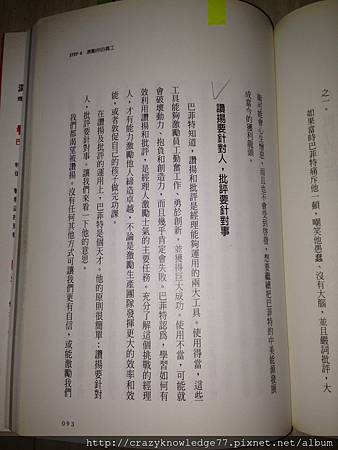 之一。
如果當時巴菲特痛斥他一頓，嘲笑他愚蠢、沒有大腦，並且嚴詞批評，大
STEP 4 激勵你的員工
可能會心生怨懟，而且也不會受到啟發，想要繼續把巴菲特的中美能源發展
成當今的獲利龍頭。
讚揚要針對人，批評要針對事
巴菲特知道，讚揚和批評是經理能夠運用的兩大工具。使用得當，這些
工具能夠激勵員工勤奮工作、勇於創新，並獲得巨大成功。使用不當，可能就
會破壞動力、抱負和創造力，而且幾乎肯定會失敗。巴菲特認為，學習如何有
效利用讚揚和批評，是經理人激勵士氣的主要任務。充分了解這個挑戰的經理
人，才有能力激勵他人締造卓越，不論是激勵生產團隊發揮更大的效率和效
能，或者敦促自己的孩子做完功課。
在批評與讚揚的運用上，巴菲特是個天才。他的原則很簡單：讚揚要針對
人，批評要針對事。讓我們來看一下他的意思。
我們都渴望被讚揚。沒有任何其他方式可讓我們更有自信，或能激勵我們
093
學
巴
http://crazyknowledge77.pixnet.net/album